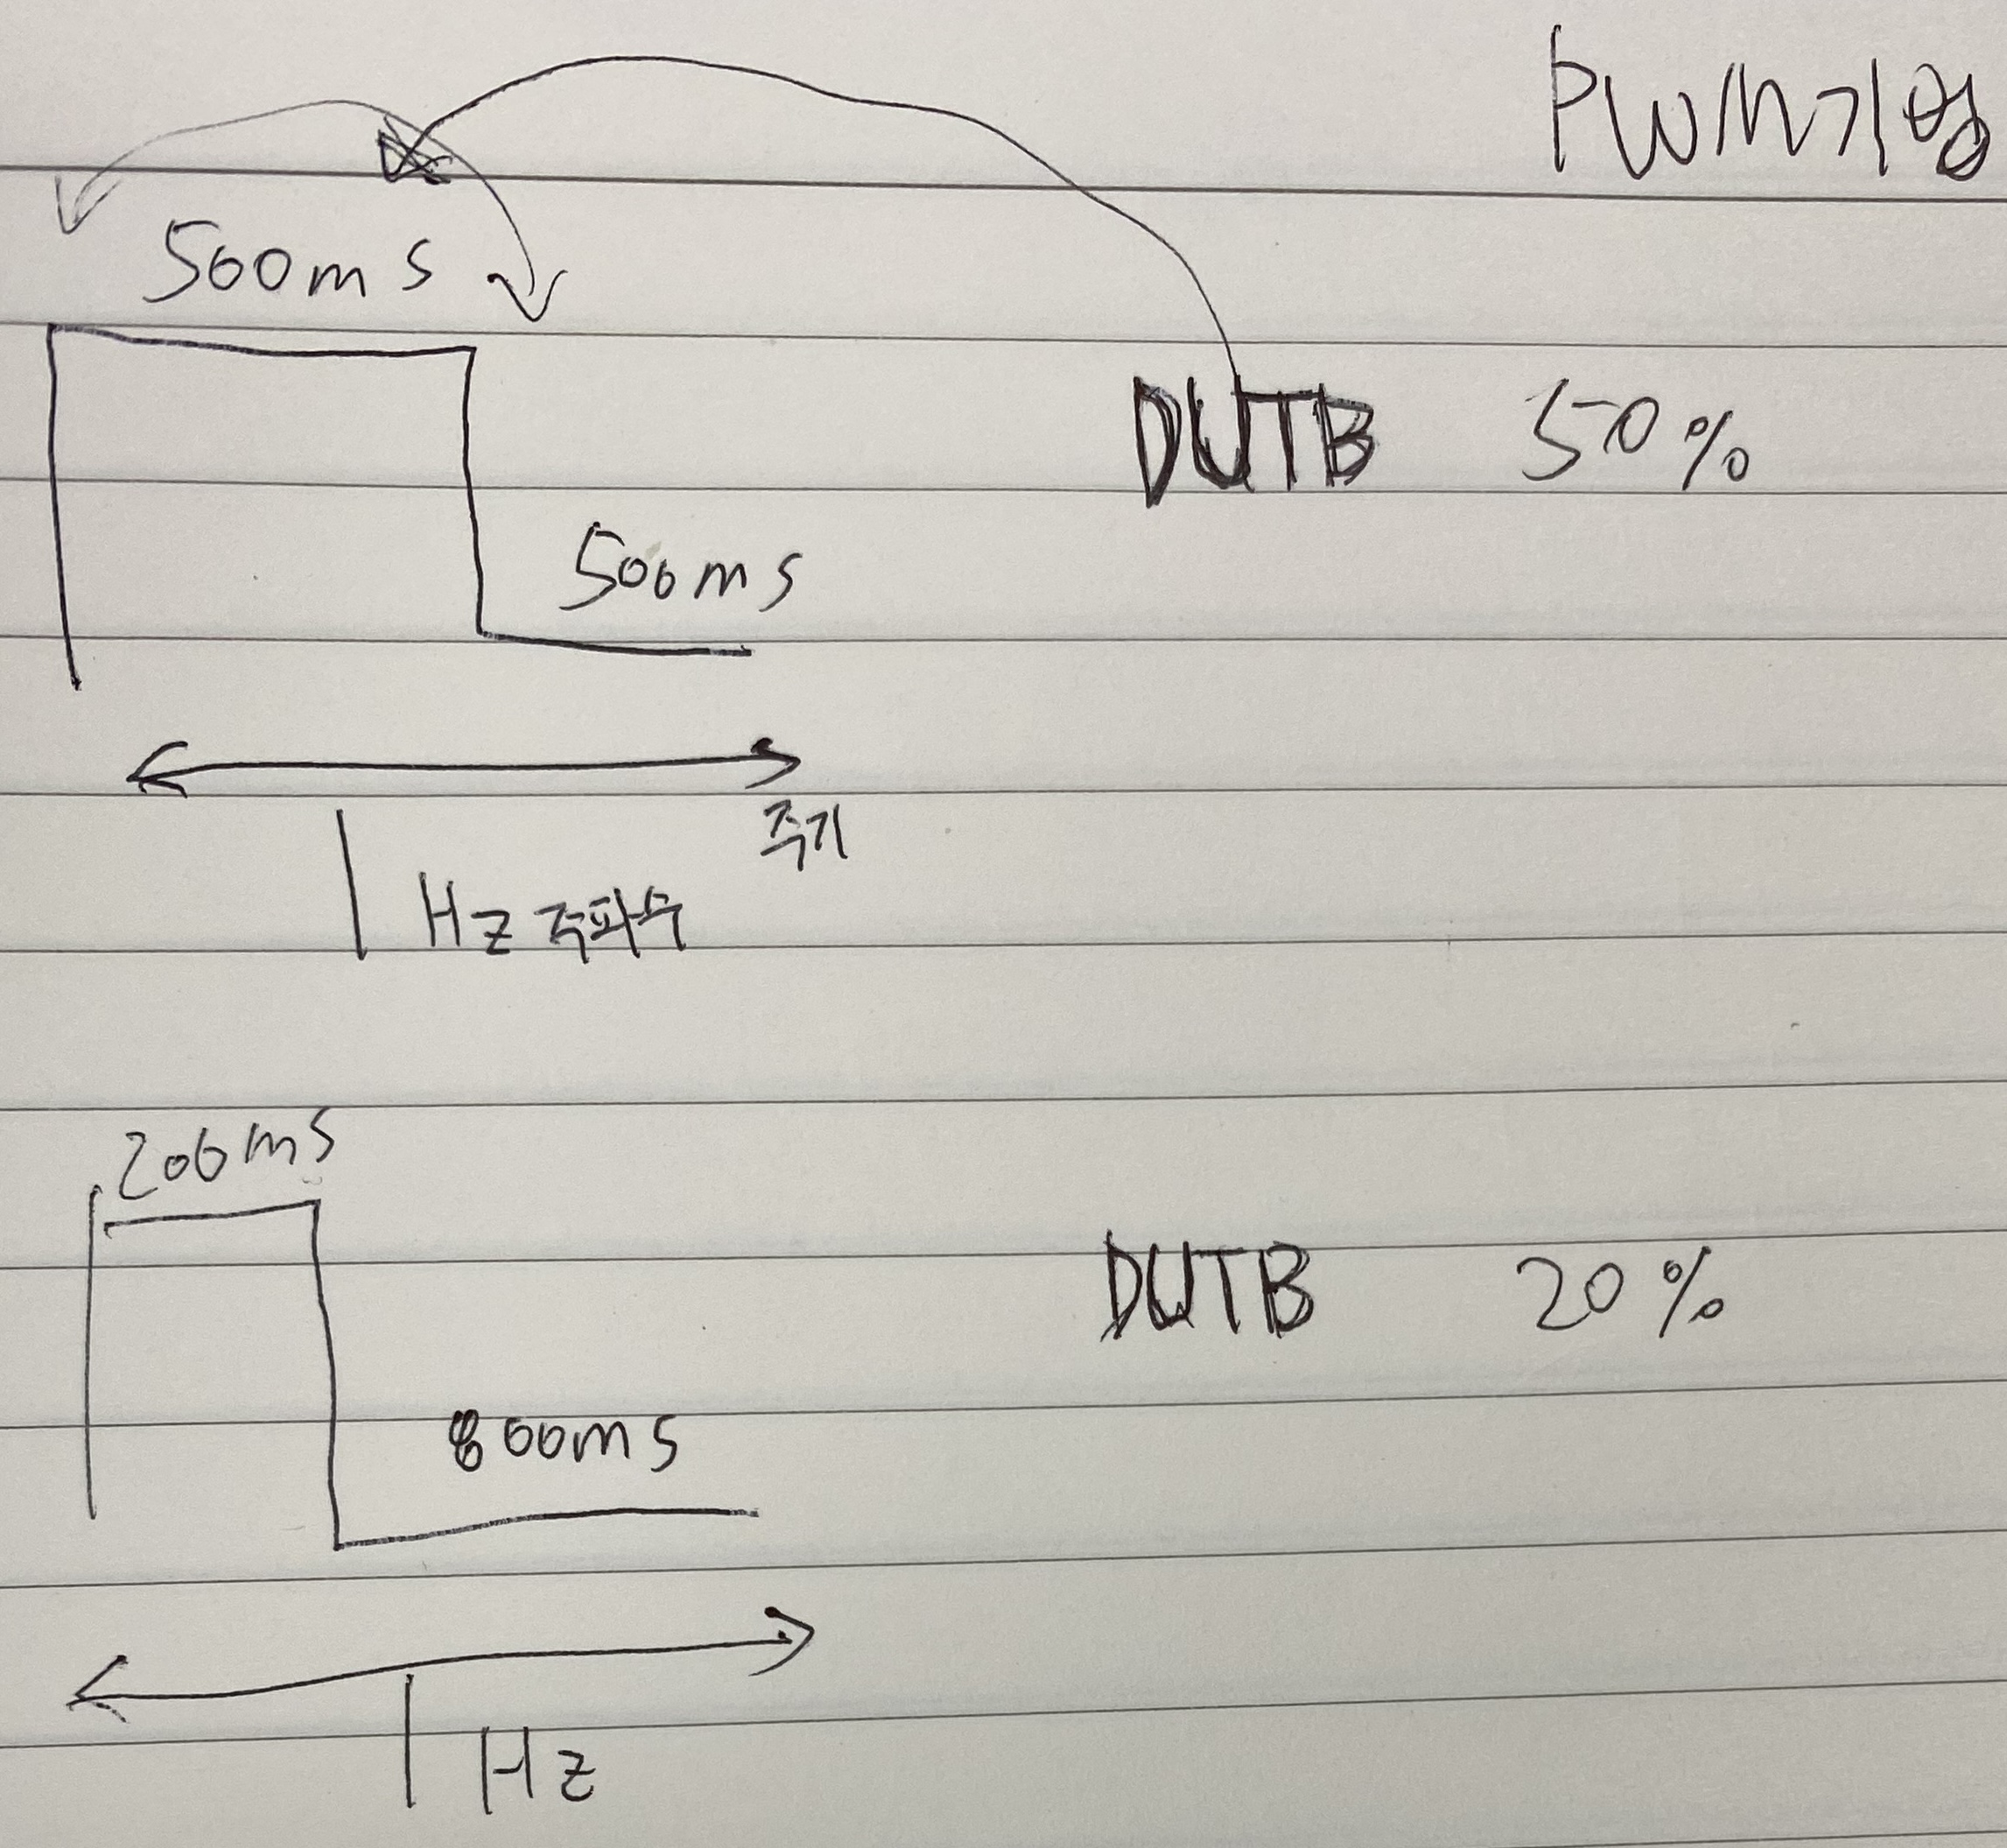 PWM기법
500ms
DUTB 50%
500ms
주기
1Hz 주파수
200ms
DUTB 20%
800ms
1Hz